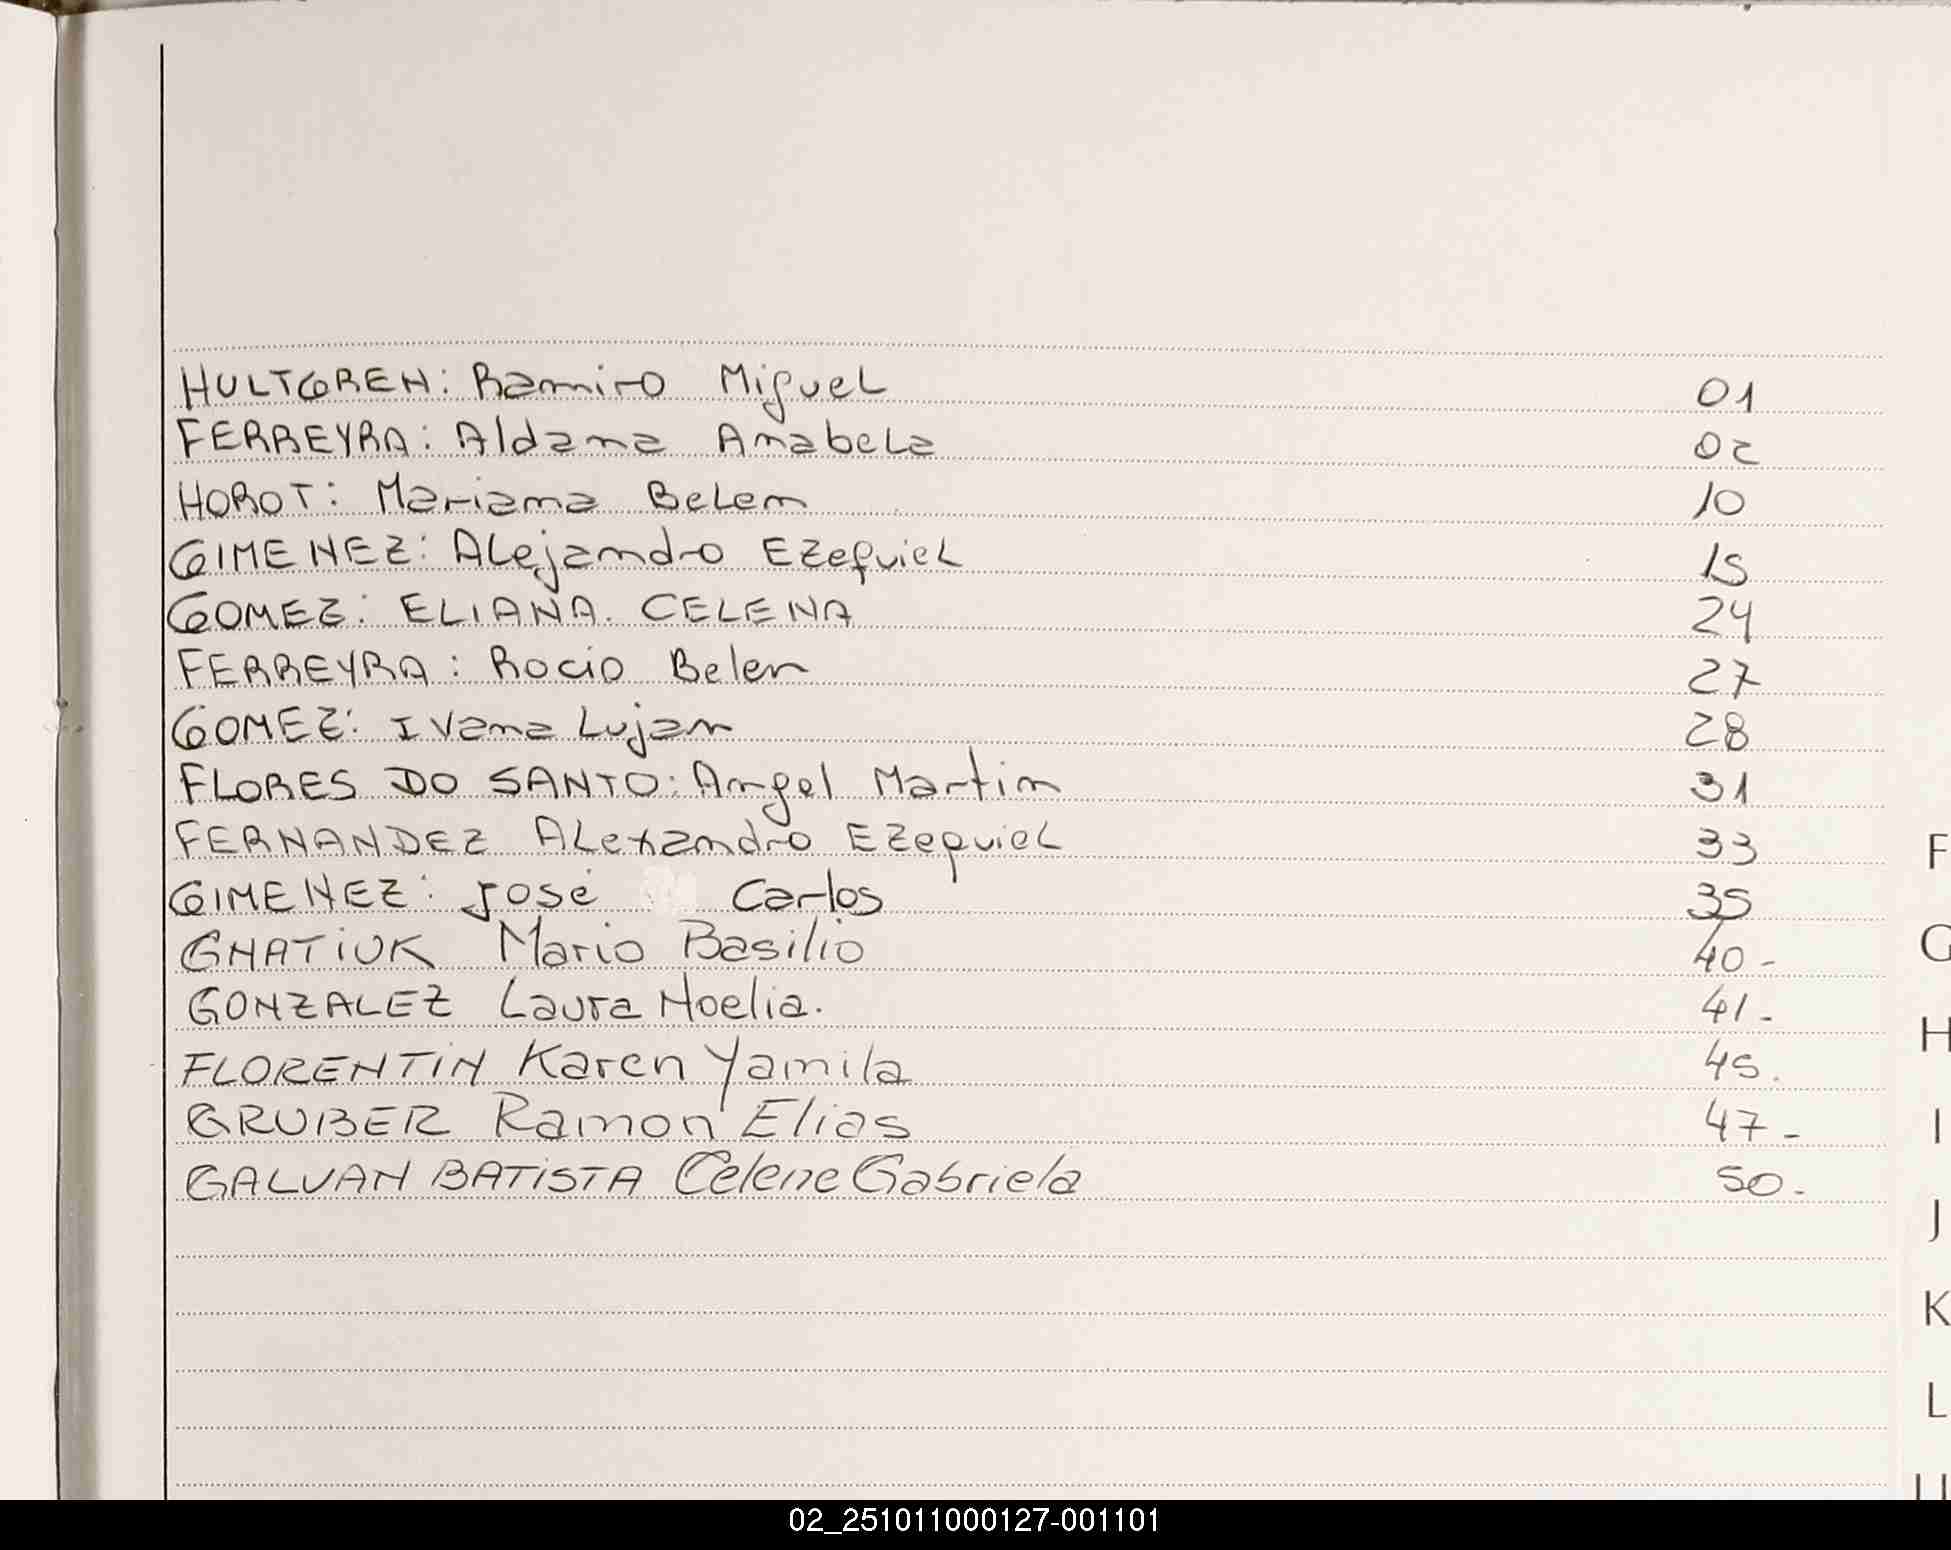 HULTGREN: Ramiro Miguel 01
FERREYRA: Aldana Anabela 02
HOROT: Mariana Belen 10
GIMENEZ: Alejandro Ezequiel 15
GOMEZ: ELIANA. CELENA 24
FERREYRA: Rocio Belen 27
GOMEZ: Ivana Lujan 28
FLORES DO SANTO: Angel Martin 31
FERNANDEZ Alexandro Ezequiel 33
GIMENEZ: José Carlos 35
GNATIUK Mario Basilio 40-
GONZALEZ Laura Noelia. 41-
FLORENTIN Karen Yamila 45.
GRUBER Ramon Elias 47-
GALVAN BATISTA Celene Gabriela 50.
F
G
H
I
J
K
L
02_251011000127-001101